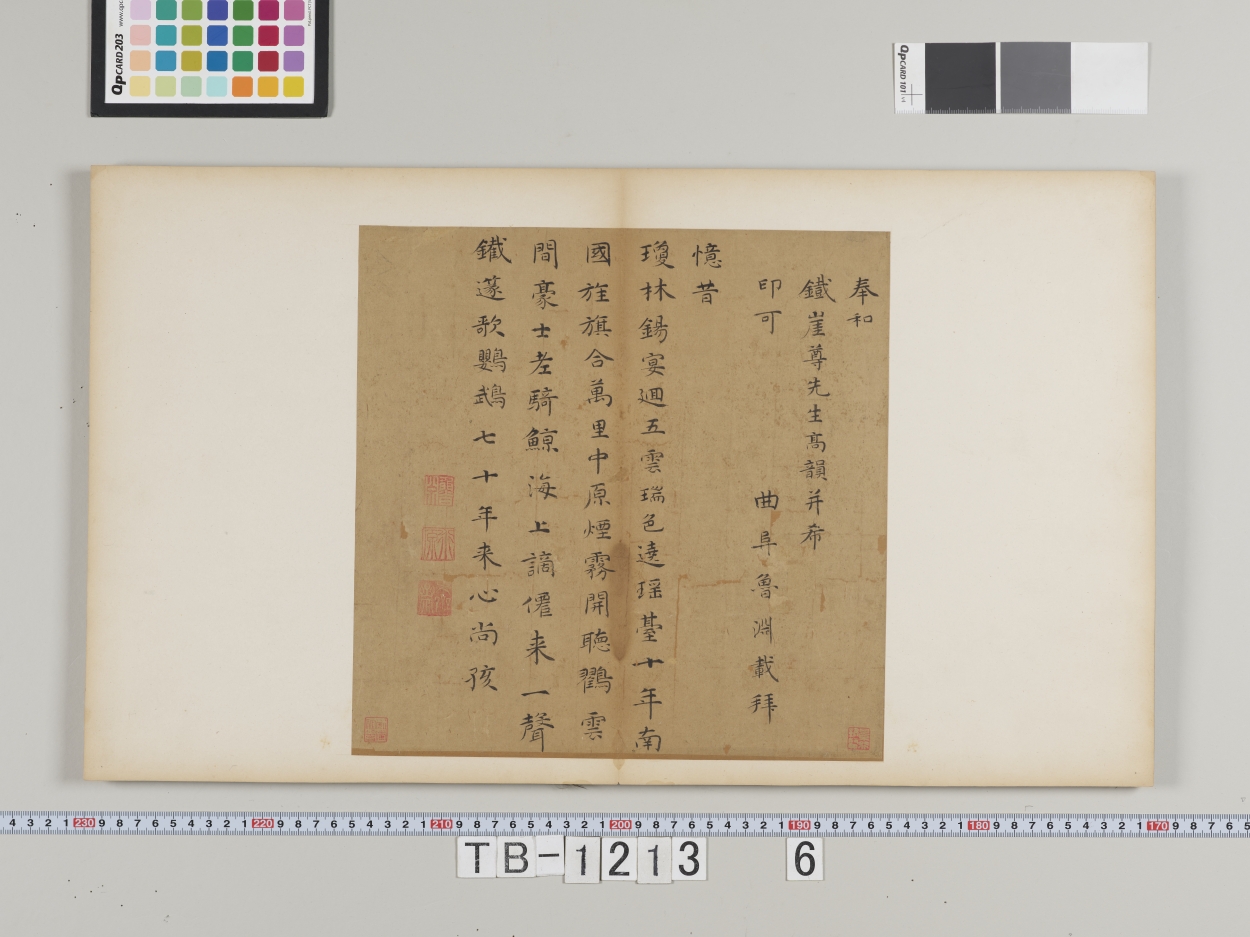 奉和
鐵崖尊先生髙韻并希
印可
曲阜魯淵載拜
憶昔
瓊林錫宴迴五雲瑞色遶瑶臺十年南
國旌旗合萬里中原煙霧開聴鸛雲
間豪士老騎鯨海上謫僊来一聲
鐵篴歌鸚鵡七十年来心尚孩
QPCARD 203
QPCARD 101
4 3 2 1 230 9 8 7 6 5 4 3 2 1 220 9 8 7 6 5 4 3 2 1 210 9 8 7 6 5 4 3 2 1 200 9 8 7 6 5 4 3 2 1 190 9 8 7 6 5 4 3 2 1 180 9 8 7 6 5 4 3 2 1 170 9 8 7 6 5
TB-1213 6